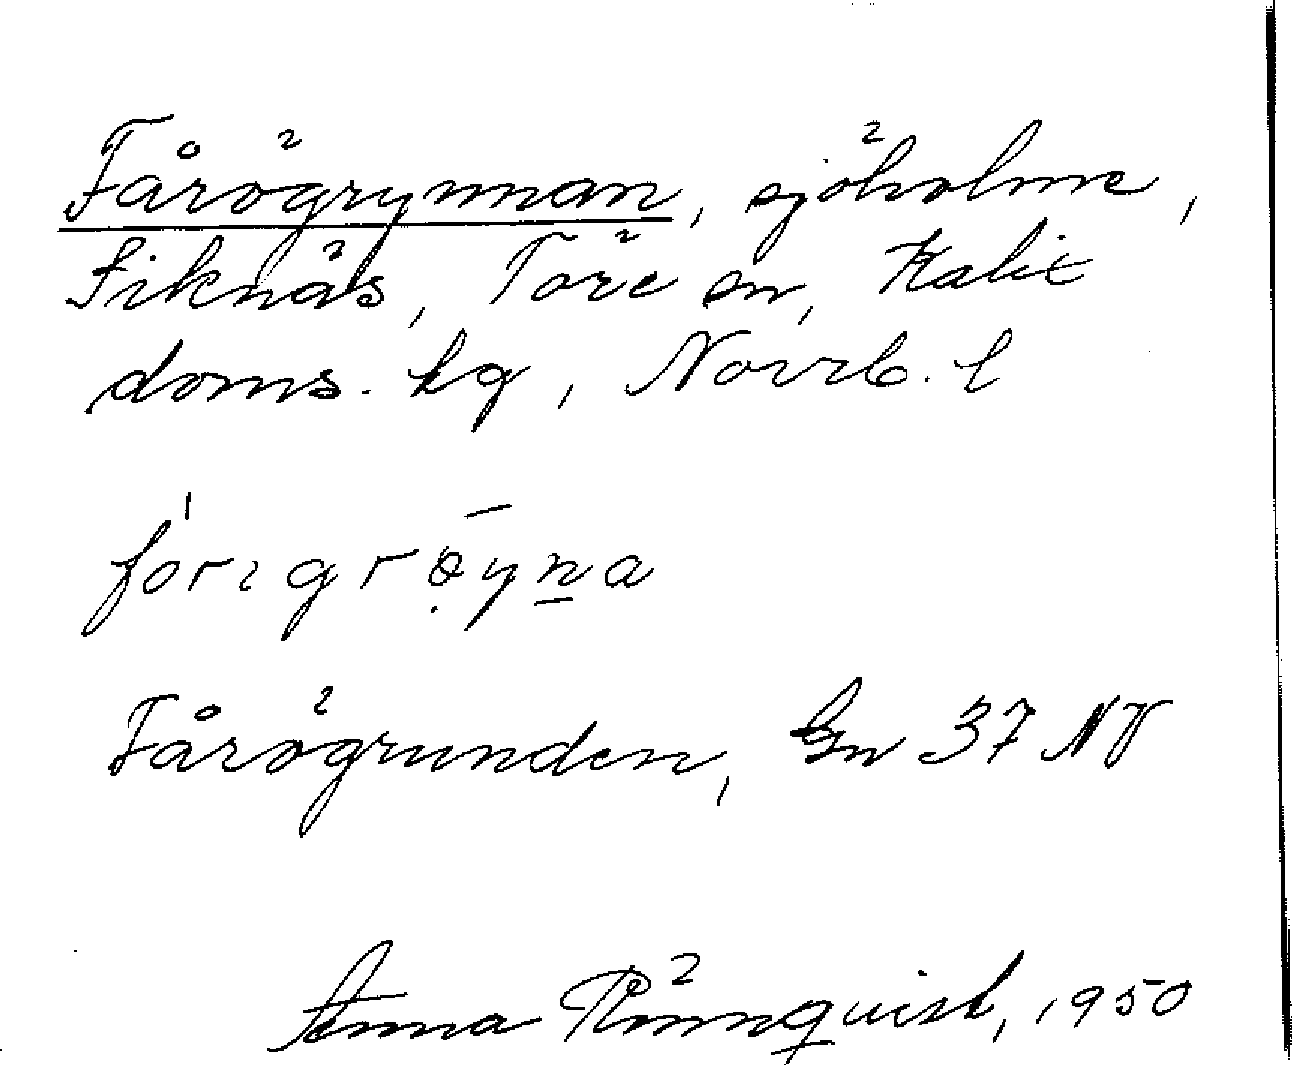 Fårögrynnan, sjöholme,
Siknäs, Töre sn, Kalix
doms. hg, Norrb. l
fórıgrø̣̄yṉa
Fårögrunden, Gn 37 NV
Anna Rönnquist, 1950